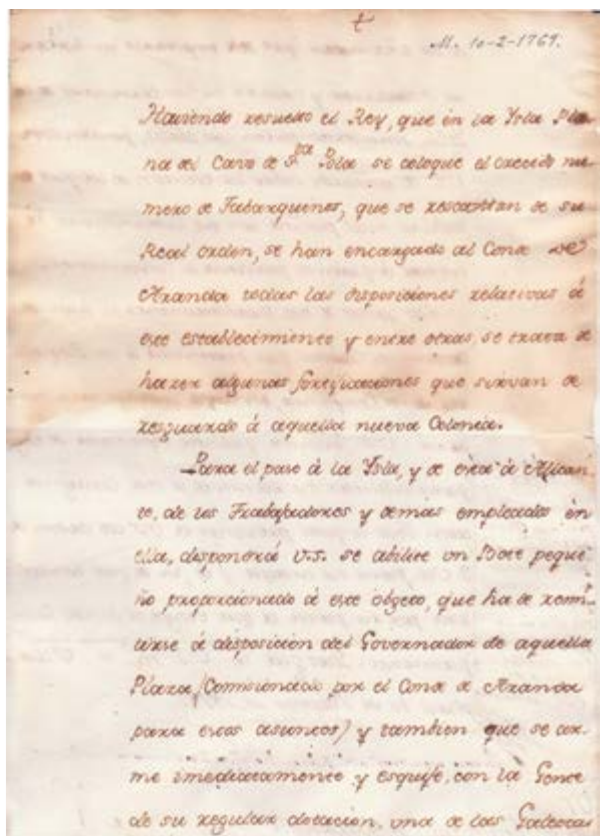 †
M. 10-2-1769.
Haviendo resuelto el Rey, que en la Ysla Pla-
na del Cavo de S.ta Pola se coloque el crecido nu-
mero de Tabarquenos, que se rescattan de su
Real orden, se han encargado al Conde de
Aranda todas las disposiciones relativas á
este establecimiento y entre otras, se trata de
hazer algunas fortificaciones que sirvan de
resguardo á aquella nueva Colonia.
Para el paso á la Ysla, y de esta á Alican-
te, de los Trabajadores y demas empleados en
ella, dispondrá V.S. se abilite un Bote peque-
ño proporcionado á este objeto, que ha de remi-
tirse á disposicion del Governador de aquella
Plaza (Comisionado por el Conde de Aranda
para estos asuntos) y tambien que se ar-
me imediatamente y esquife, con la Gente
de su regular dotacion, una de las Galeotas